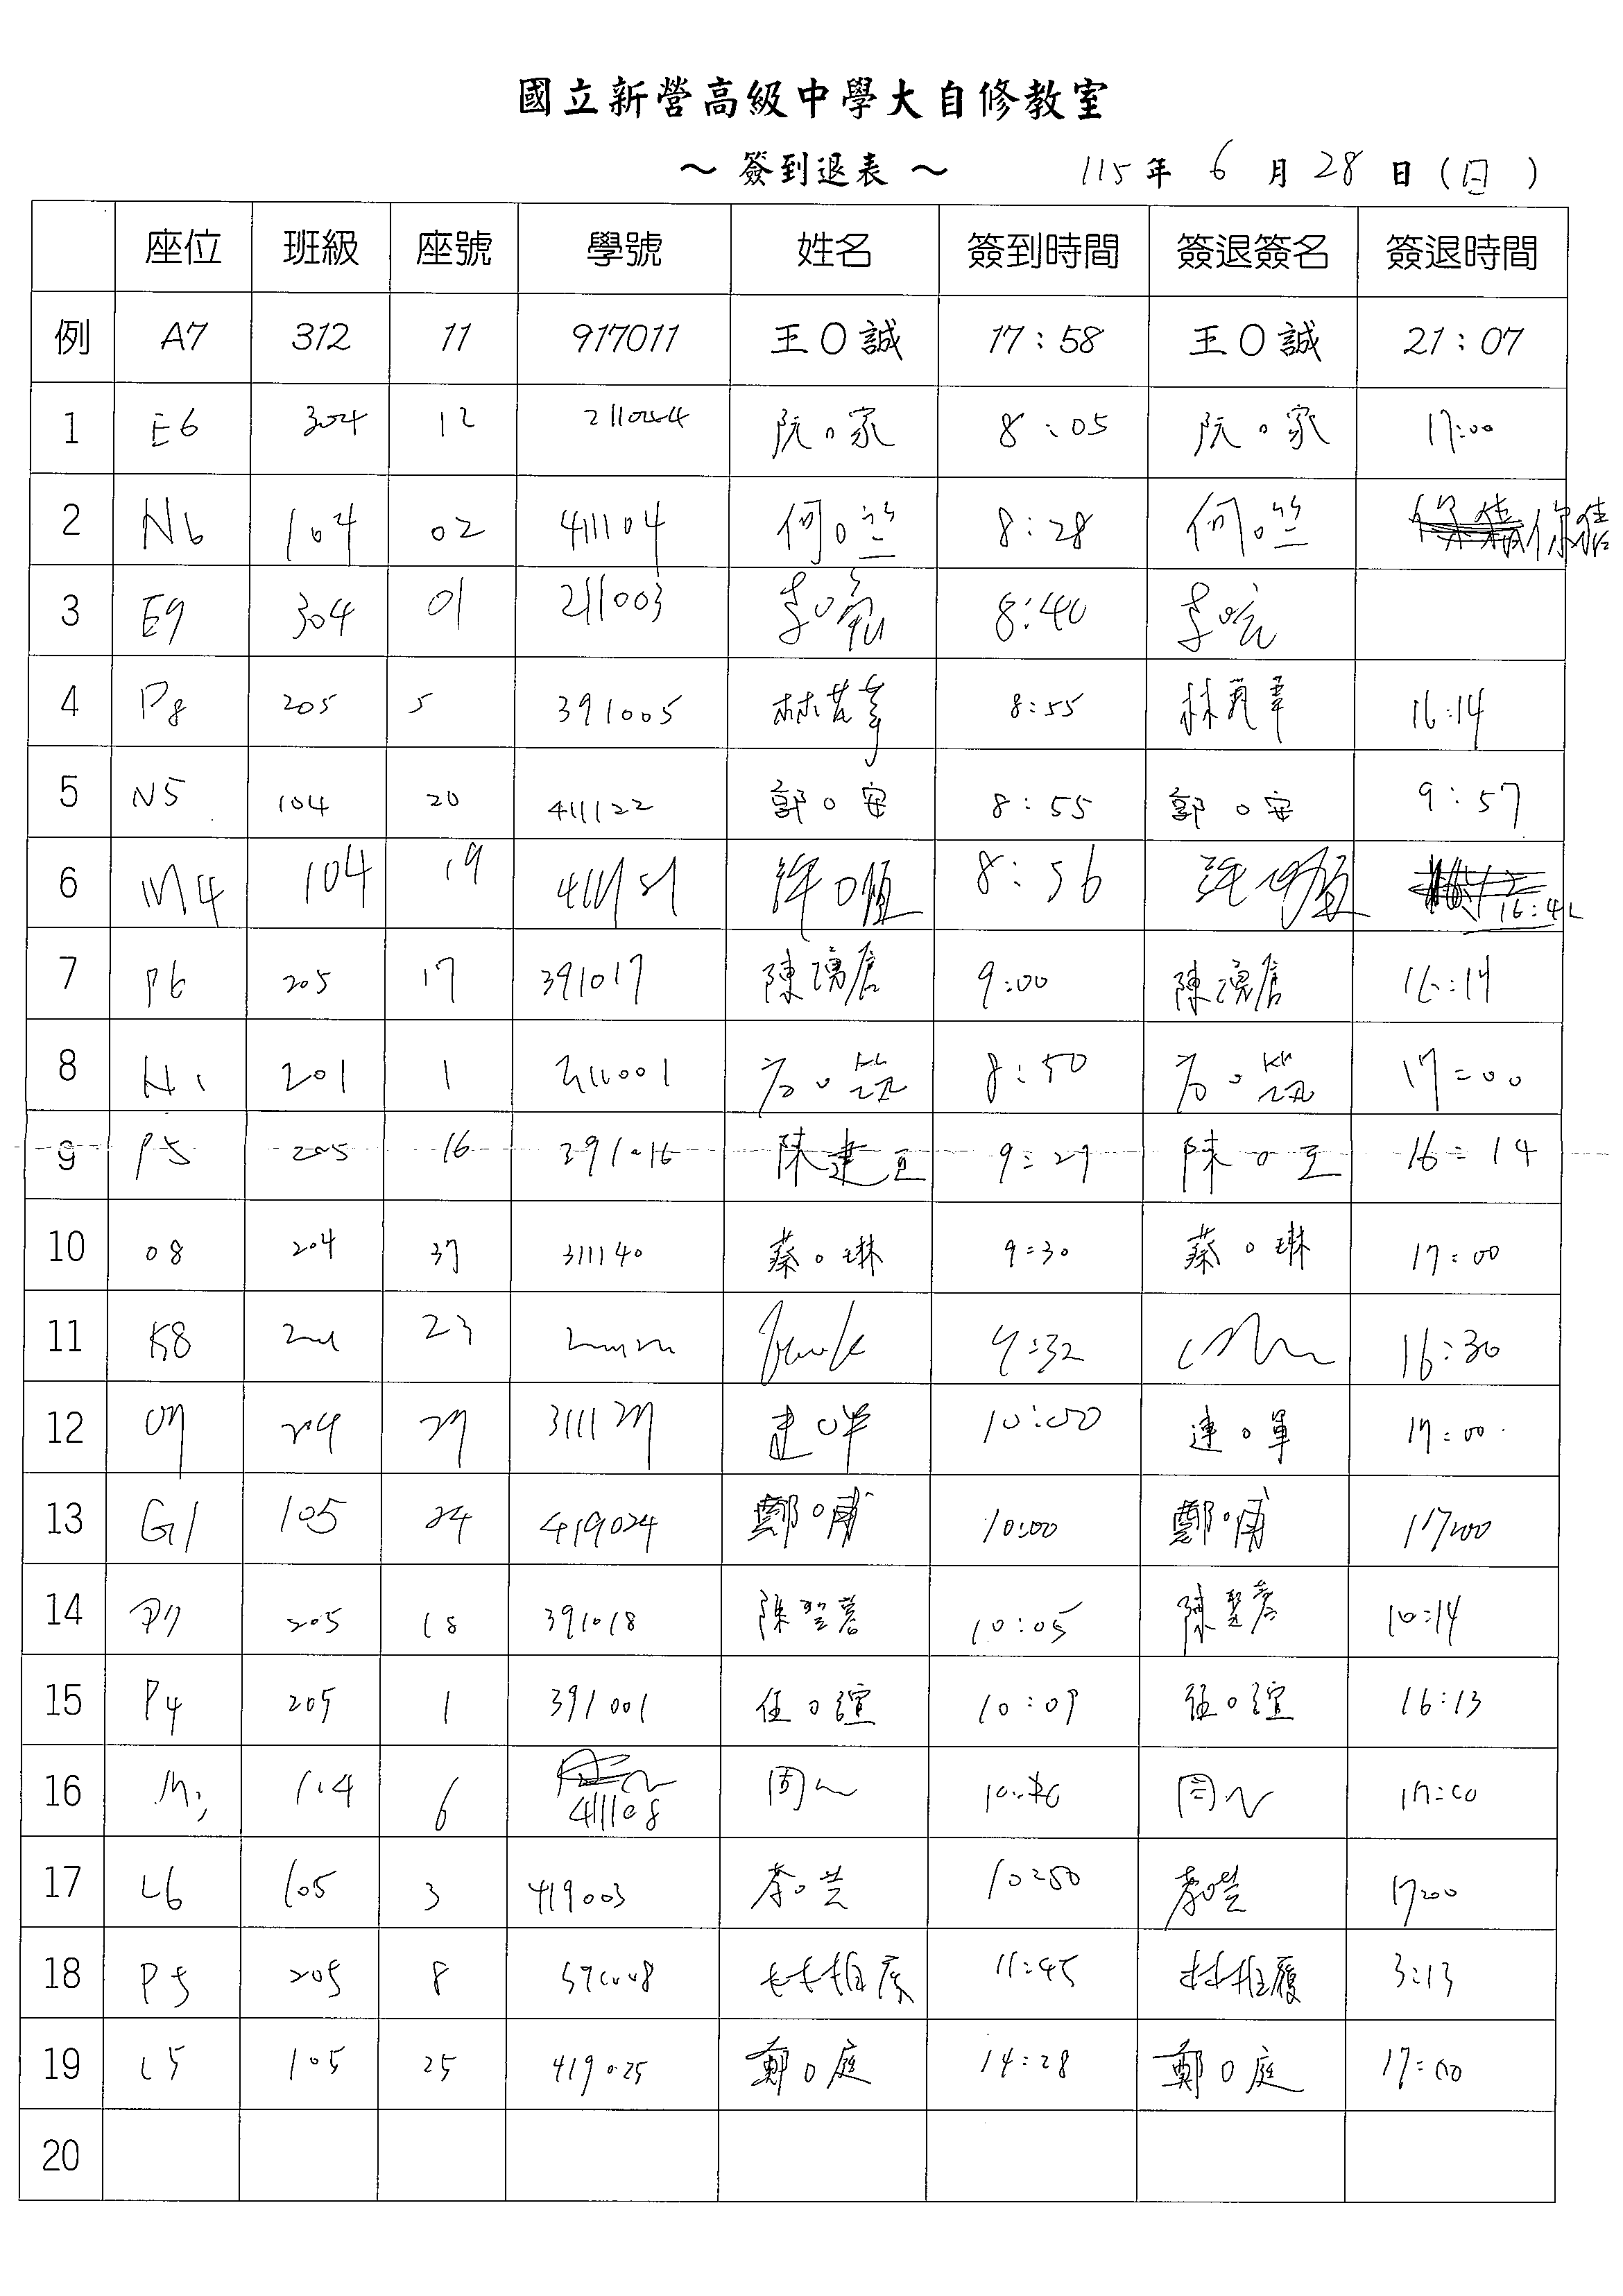 國立新營高級中學大自修教室
～ 簽到退表 ～ 115 年 6 月 28 日 (日)
座位 班級 座號 學號 姓名 簽到時間 簽退簽名 簽退時間
例 A7 312 11 917011 王O誠 17:58 王O誠 21:07
1 E6 304 12 阮O家 8:05 阮O家 17:00
2 N6 104 02 411104 何O竺 8:28 何O竺
3 E9 304 01 211003 李O 8:40 李O
4 P8 205 5 391005 林 8:55 林 16:14
5 N5 104 20 411122 郭O安 8:55 郭O安 9:57
6 M4 104 19 許O恒 8:56 16:42
7 P6 205 17 391017 陳 9:00 陳 16:14
8 H1 201 1 311001 8:50 17:00
9 P5 205 16 391016 陳建亙 9:29 陳O亙 16:14
10 O8 204 37 311140 蔡O琳 9:30 蔡O琳 17:00
11 K8 23 9:32 16:30
12 O7 204 27 311127 連O 10:00 連O 17:00
13 G1 105 24 419024 鄭O甫 10:00 鄭O甫 17:00
14 P7 205 18 391018 陳 10:05 陳 10:14
15 P4 205 1 391001 任O誼 10:09 任O誼 16:13
16 104 6 411108 周 周 17:00
17 L6 105 3 419003 10:50 17:00
18 P5 205 8 11:45 林 3:13
19 L5 105 25 419025 鄭O庭 14:28 鄭O庭 17:00
20